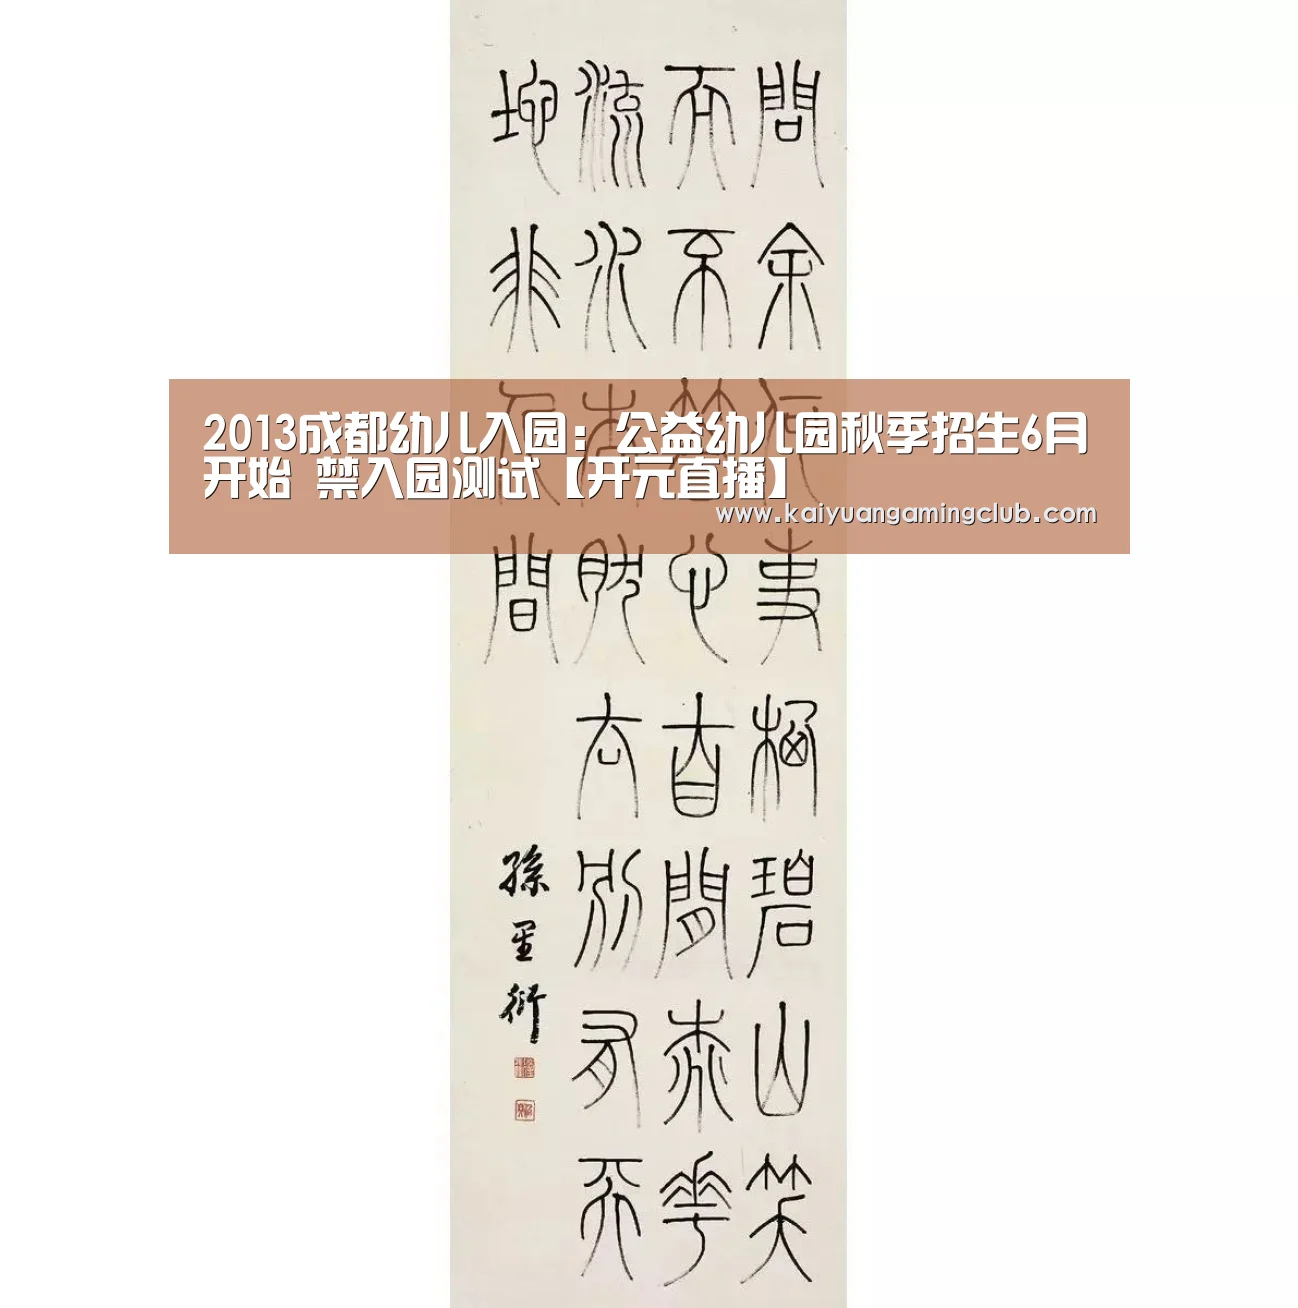 問余何事栖碧山笑
而不答心自閒桃花
流水杳然去別有天
地非人間
孫星衍
2013成都幼儿入园：公益幼儿园秋季招生6月
开始 禁入园测试【开元直播】
www.kaiyuangamingclub.com